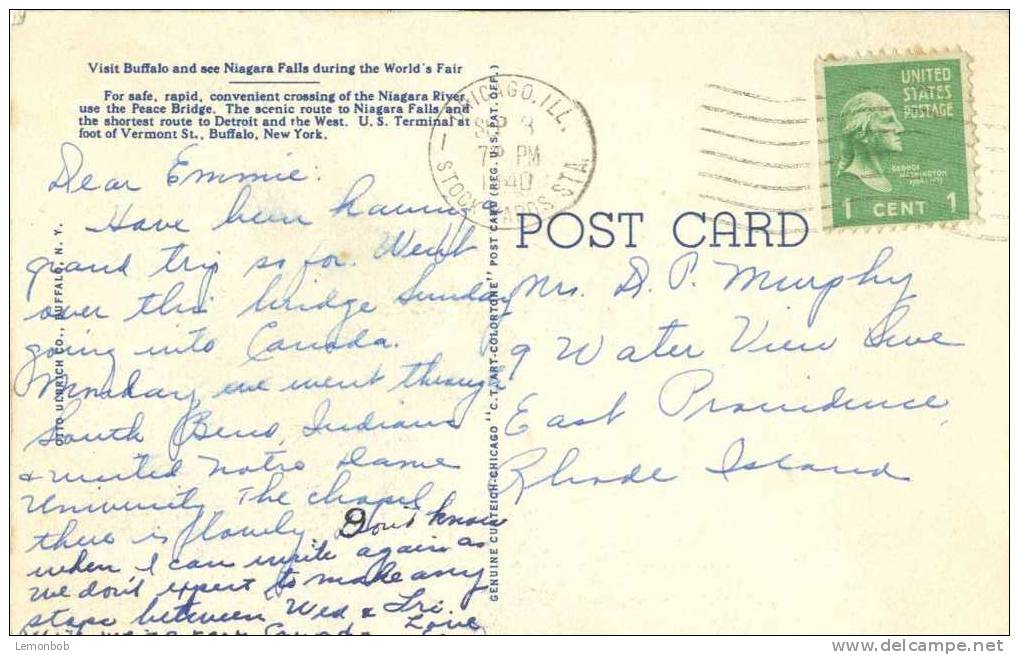 Visit Buffalo and see Niagara Falls during the World's Fair
For safe, rapid, convenient crossing of the Niagara River,
use the Peace Bridge. The scenic route to Niagara Falls and
the shortest route to Detroit and the West. U. S. Terminal at
foot of Vermont St., Buffalo, New York.
Dear Emmie:
Have been having a
grand trip so far. Went
over this bridge Sunday
going into Canada.
Monday we went through
South Bend, Indiana
& visited Notre Dame
University. The chapel
there is Don't know
when I can write again as
we don't expect to make any
stops between Wed & Fri.
Love
OTTO ULBRICH CO., BUFFALO, N. Y.
GENUINE CURTEICH-CHICAGO "C. T. ART-COLORTONE" POST CARD (REG. U. S. PAT. OFF.)
CHICAGO, ILL.
SEP 3
7 PM
1940
STOCK YARDS STA.
UNITED
STATES
POSTAGE
GEORGE
WASHINGTON
1 CENT 1
POST CARD
Mrs. D. P. Murphy
9 Water View
East Providence,
Rhode Island
9
Lemonbob
www.delcampe.net